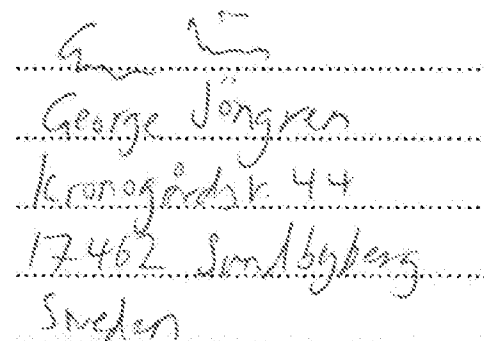 George Jöngren
Kronogårdsv. 44
17462 Sundbyberg
Sweden